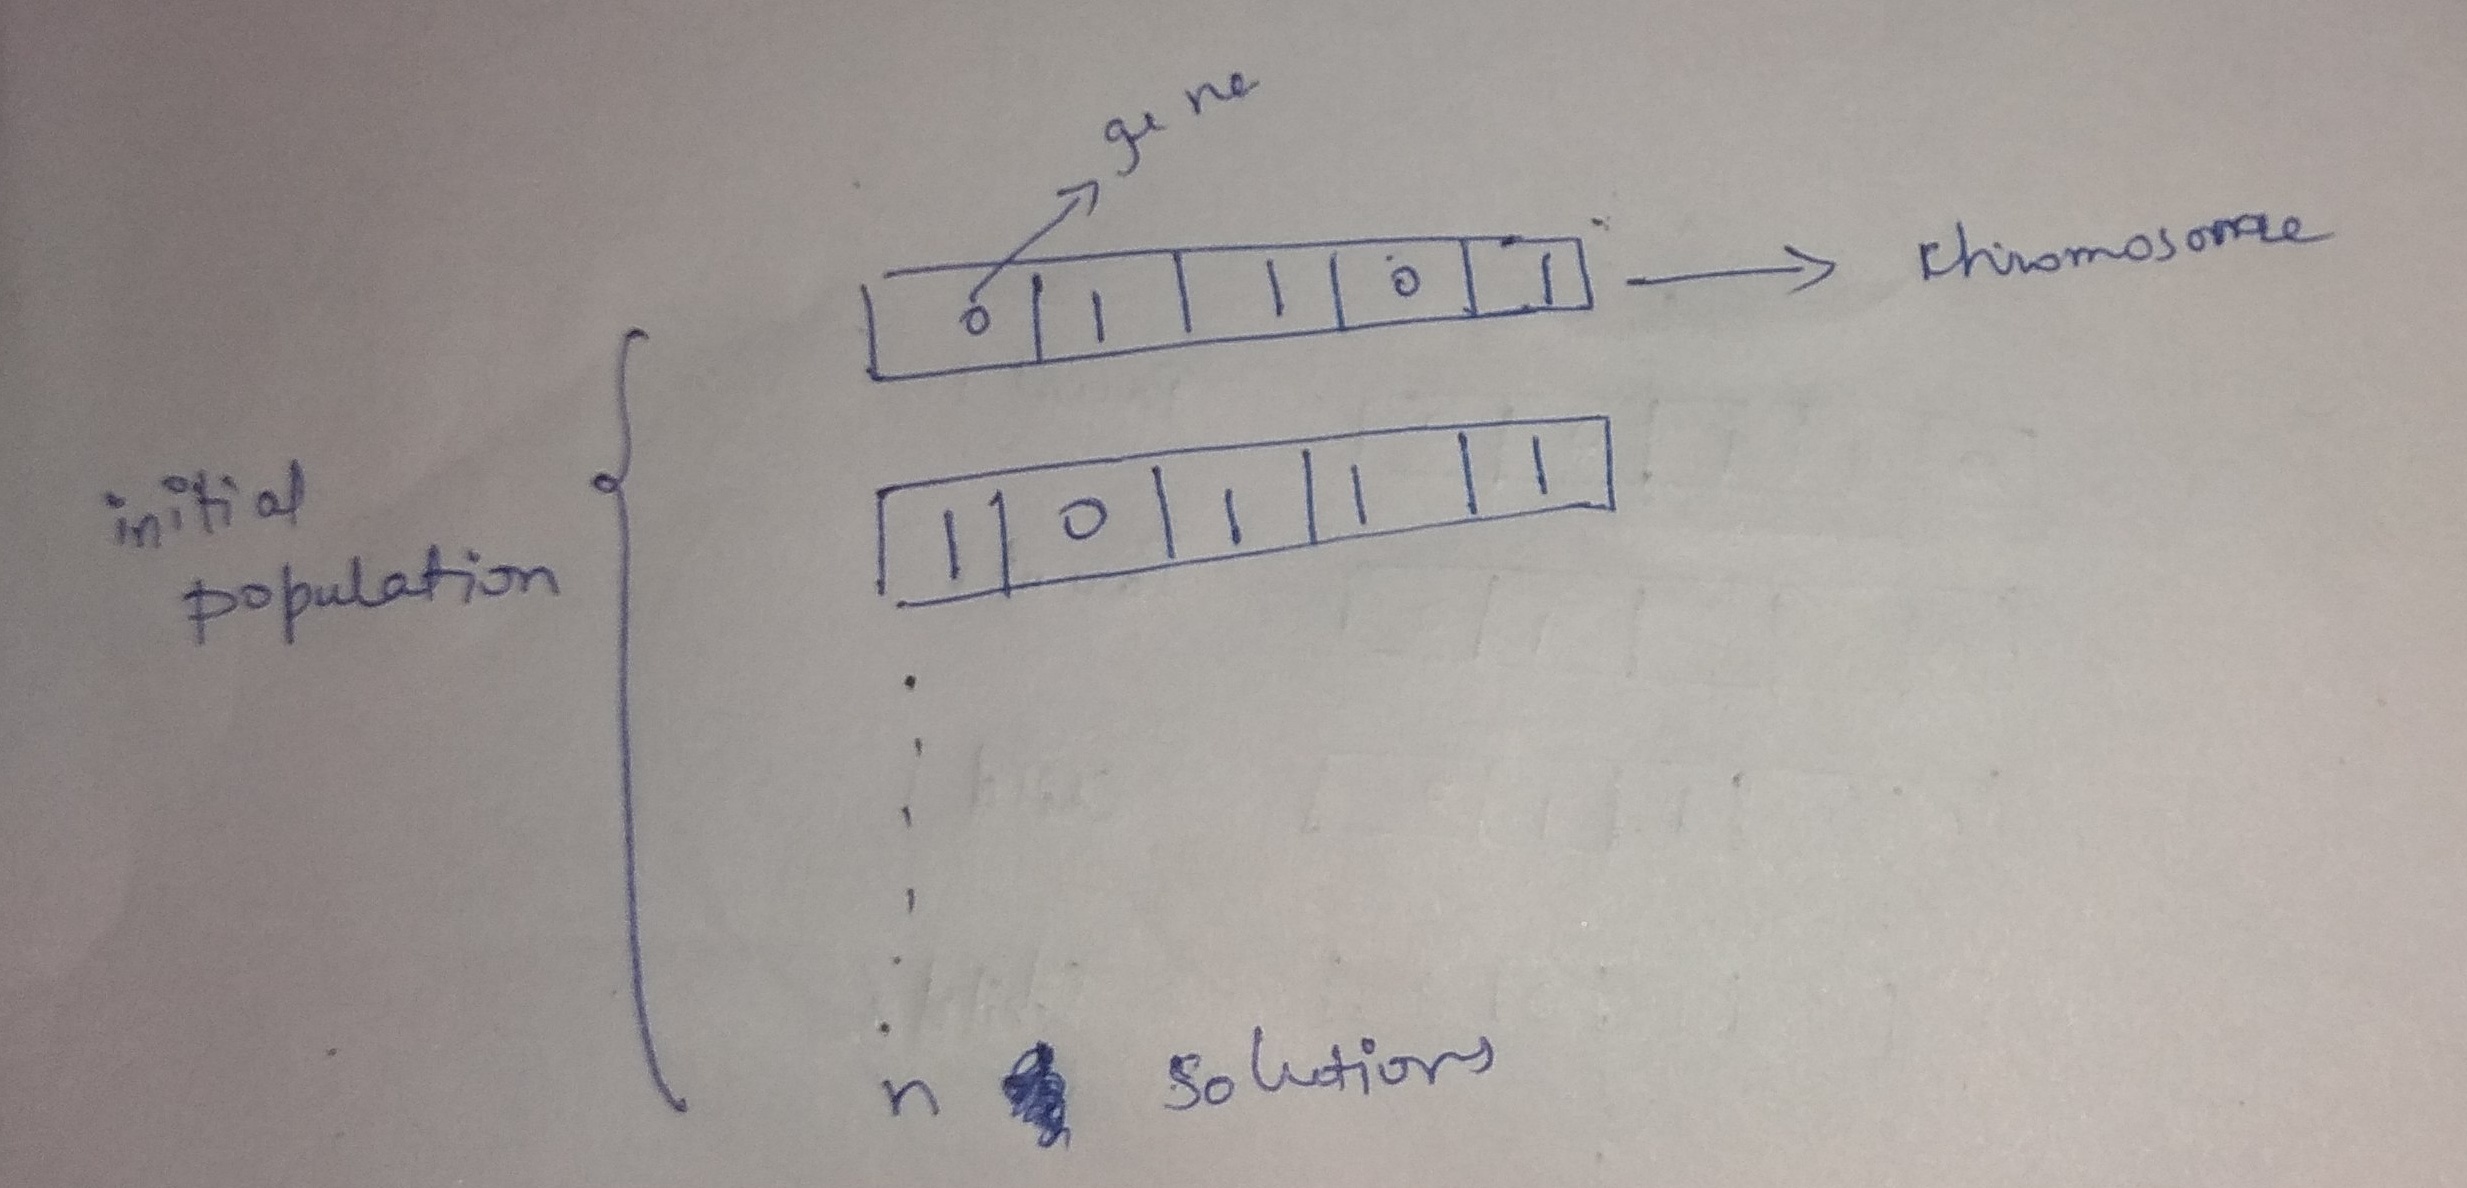 gene
0 1 1 0 1 → chromosome
initial
population
1 0 1 1 1
n solutions